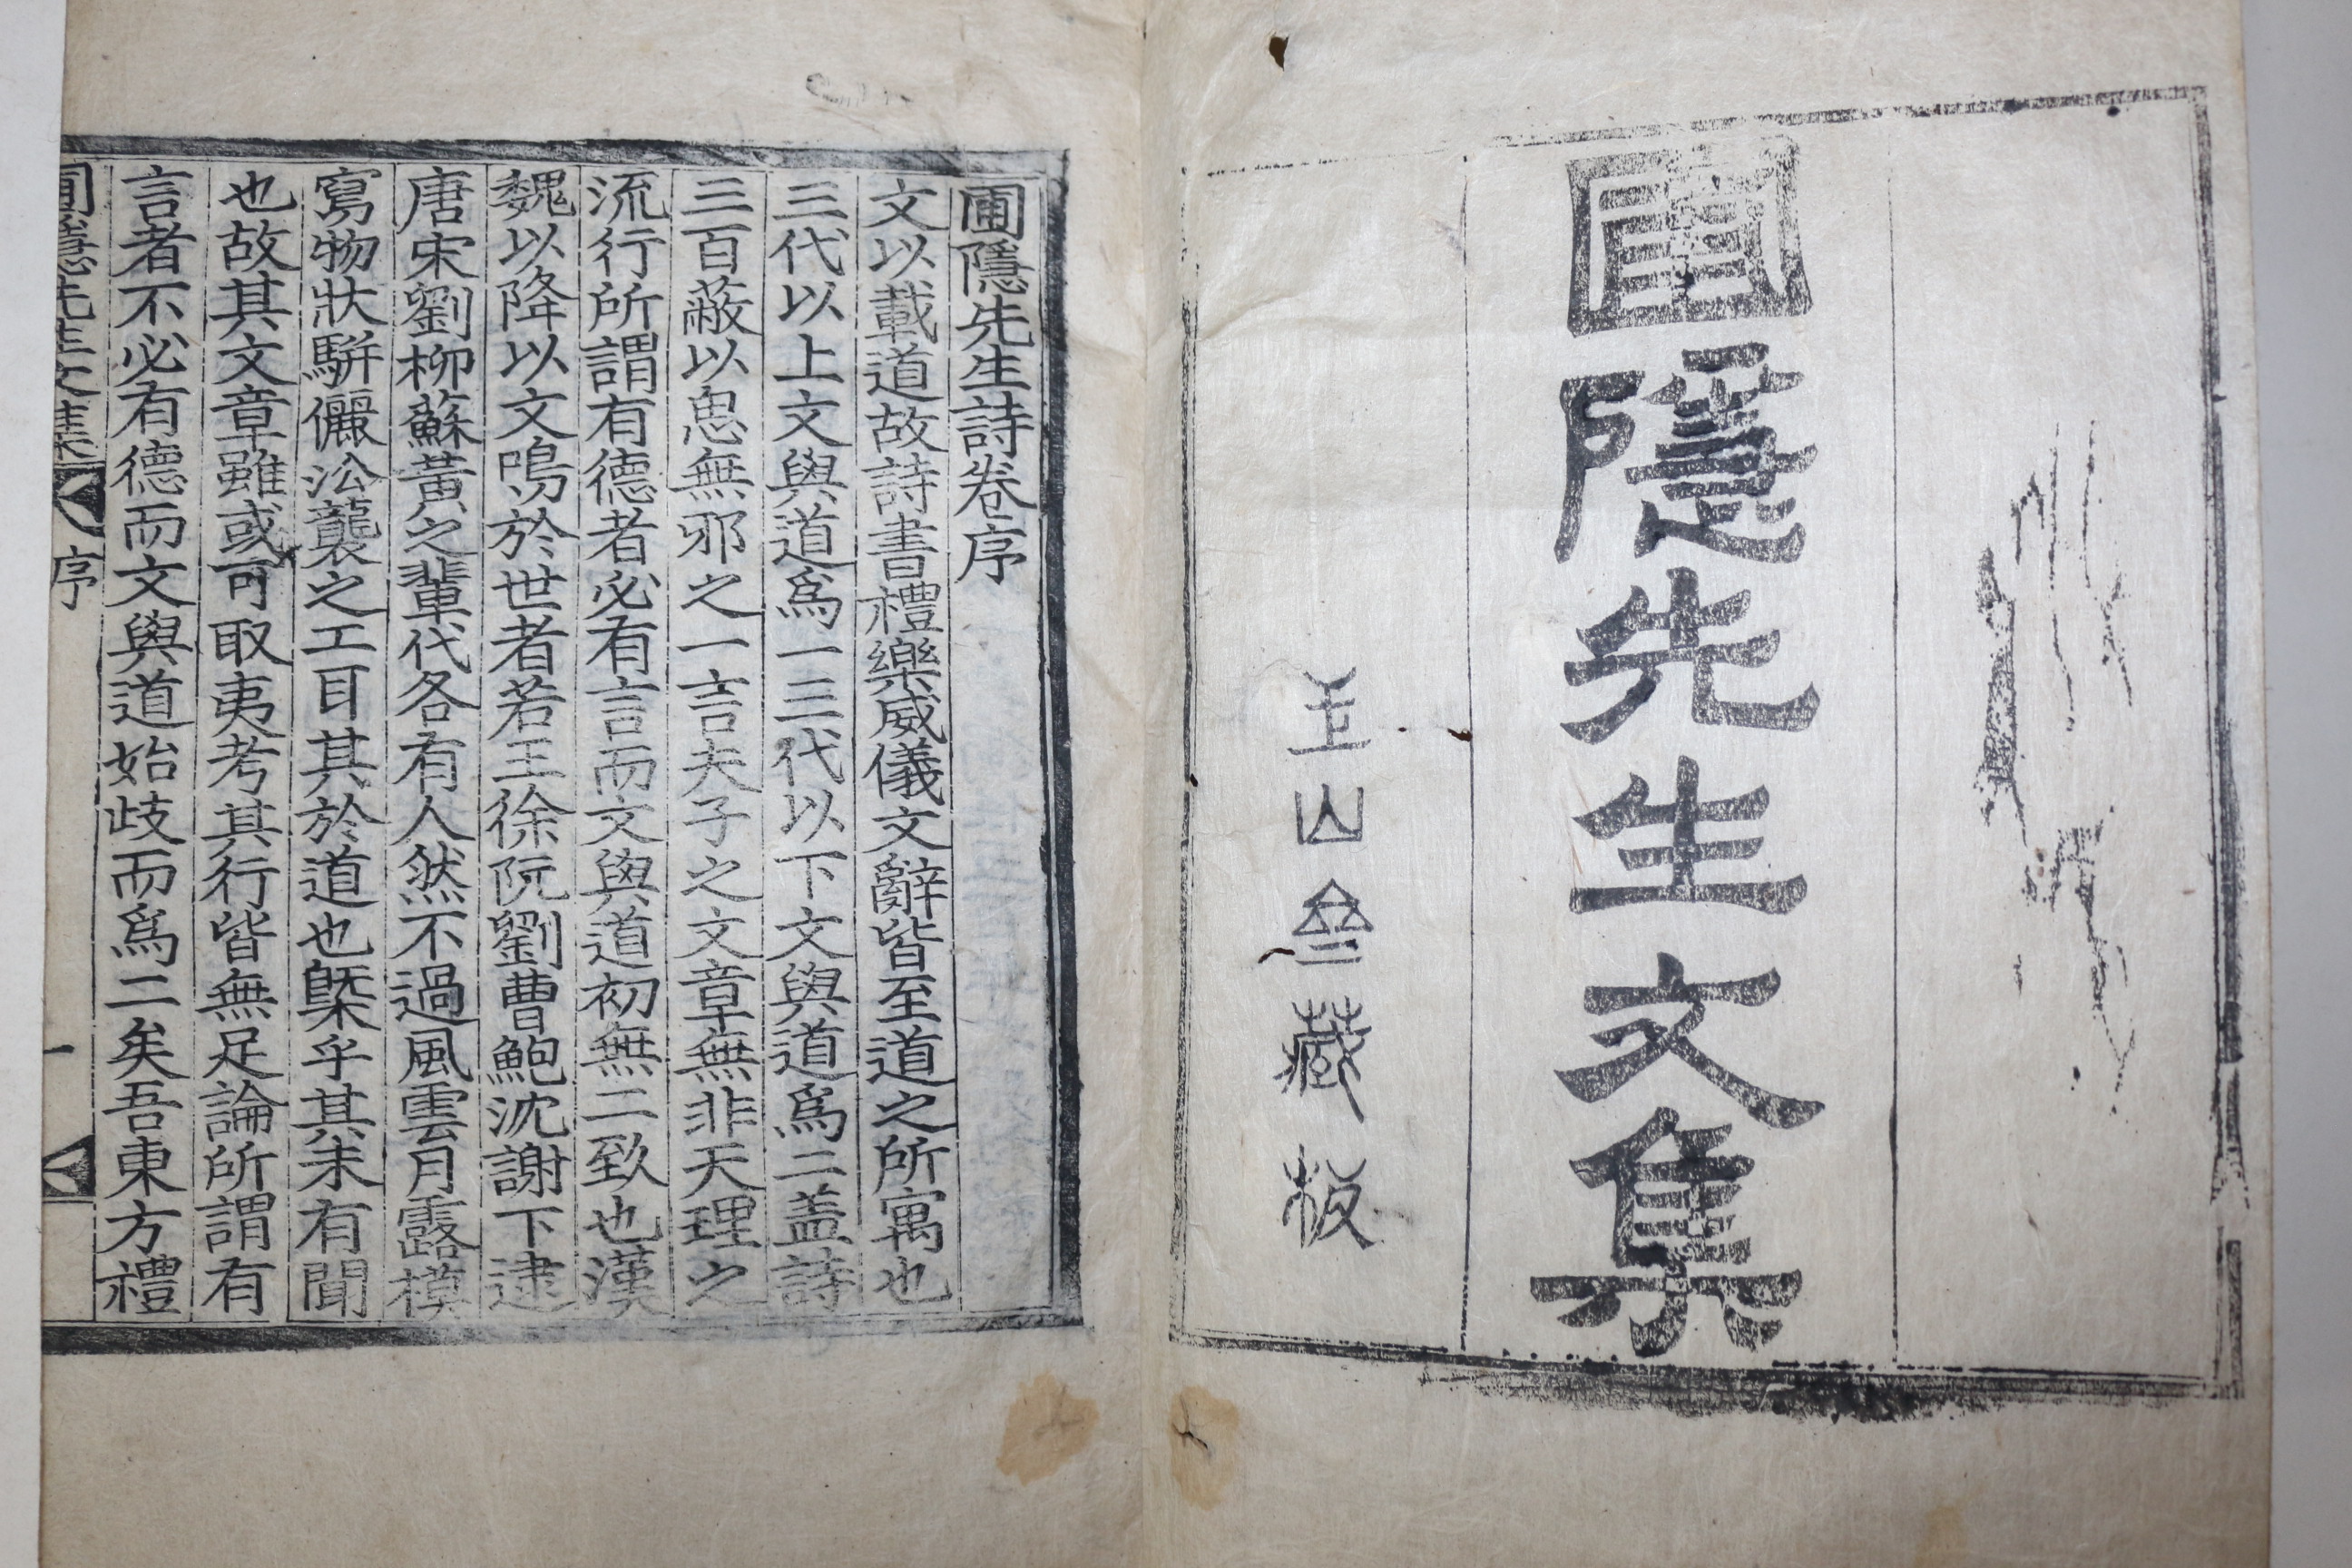 圃隱先生文集
山
藏板
圃隱先生詩卷序
文以載道故詩書禮樂威儀文辭皆至道之所寓也
三代以上文與道爲一三代以下文與道爲二盖詩
三百蔽以思無邪之一言夫子之文章無非天理之
流行所謂有德者必有言而文與道初無二致也漢
魏以降以文鳴於世者若王徐阮劉曹鮑沈謝下逮
唐宋劉柳蘇黃之輩代各有人然不過風雲月露模
寫物狀騈儷㳂襲之工耳其於道也槩乎其未有聞
也故其文章雖或可取夷考其行皆無足論所謂有
言者不必有德而文與道始歧而爲二矣吾東方禮
圃隱先生文集 序 一